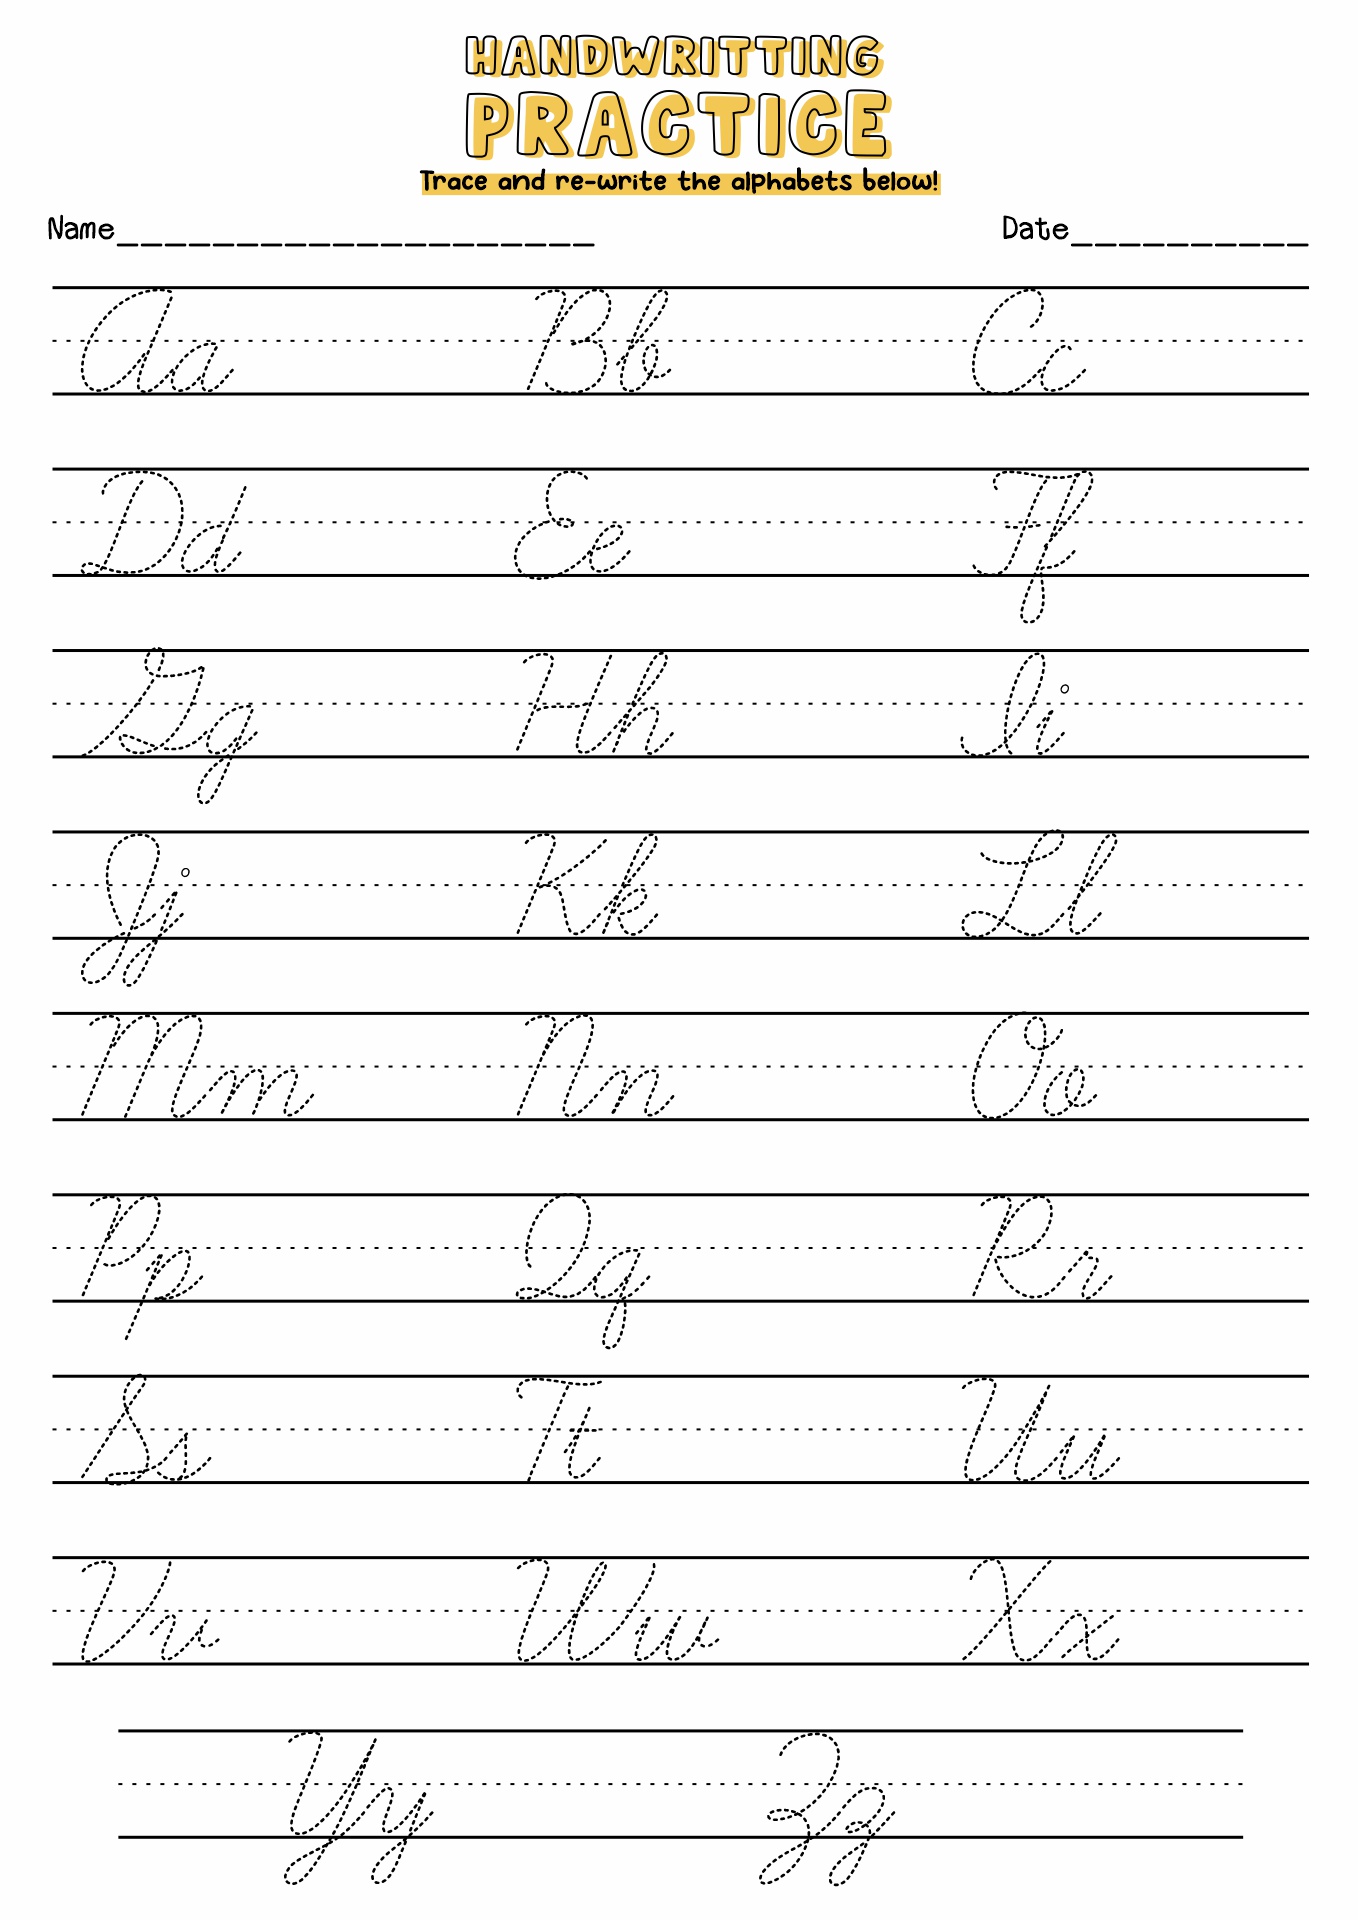 HANDWRITTING
PRACTICE
Trace and re-write the alphabets below!
Name____________________ Date__________
Aa Bb Cc
Dd Ee Ff
Gg Hh Ii
Jj Kk Ll
Mm Nn Oo
Pp Qq Rr
Ss Tt Uu
Vv Ww Xx
Yy Zz